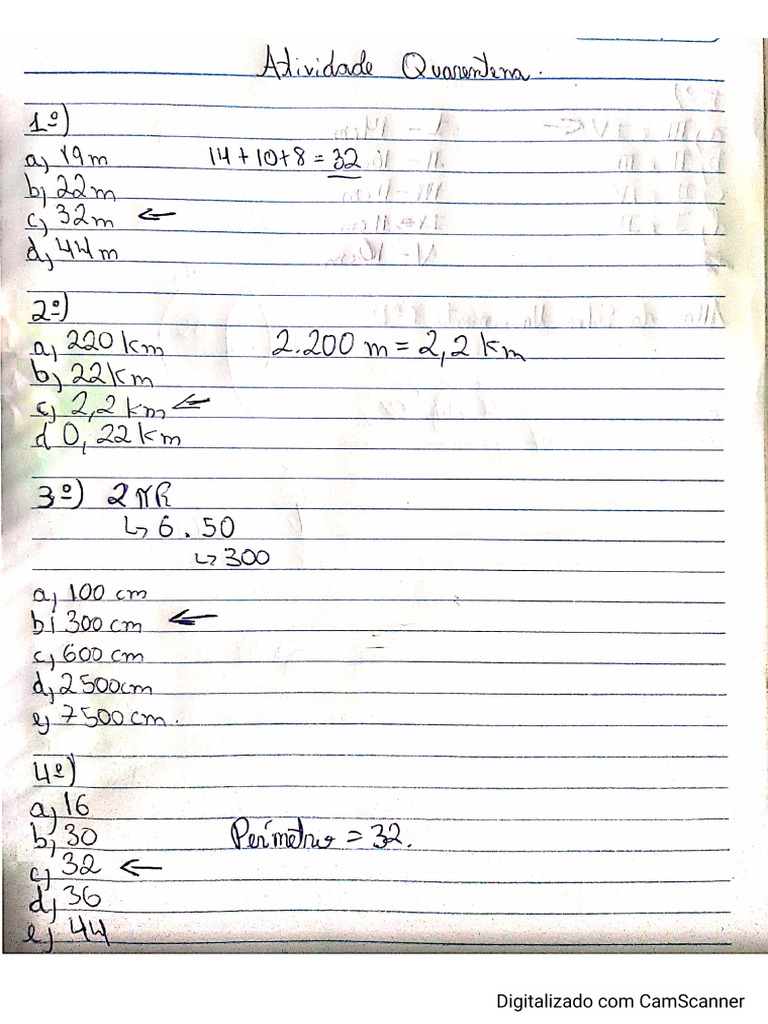 Atividade Quarentena.
1º)
a) 19m 14+10+8 = 32
b) 22m
c) 32m ←
d) 44m
2º)
a) 220 km 2.200 m = 2,2 km
b) 22km
c) 2,2 km ←
d 0, 22 km
3º) 2πR
↳ 6 . 50
↳ 300
a) 100 cm
b) 300 cm ←
c) 600 cm
d) 2500cm
e) 7500 cm.
4º)
a) 16
b) 30 Perímetro = 32.
c) 32 ←
d) 36
e) 44
Digitalizado com CamScanner